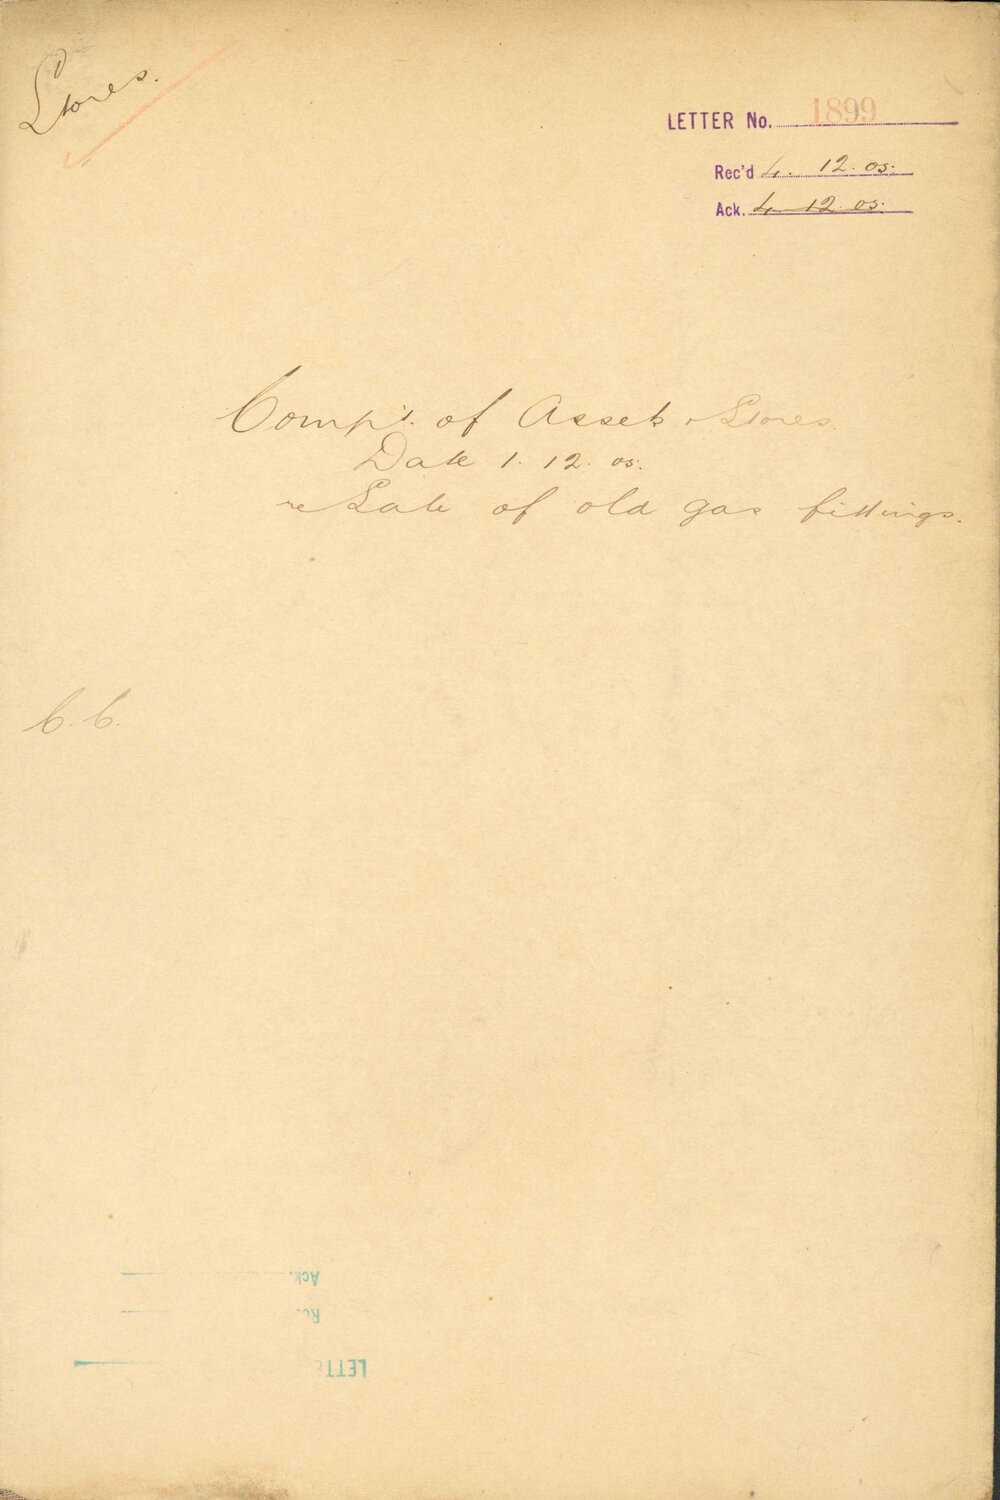 Stores.
LETTER No. 1899
Rec'd 4. 12. 05.
Ack. 4 12 05.
Comp't. of Assets & Stores.
Date 1. 12. 05.
re Sale of old gas fittings.
C. C.
Ack.
Re
LETTE